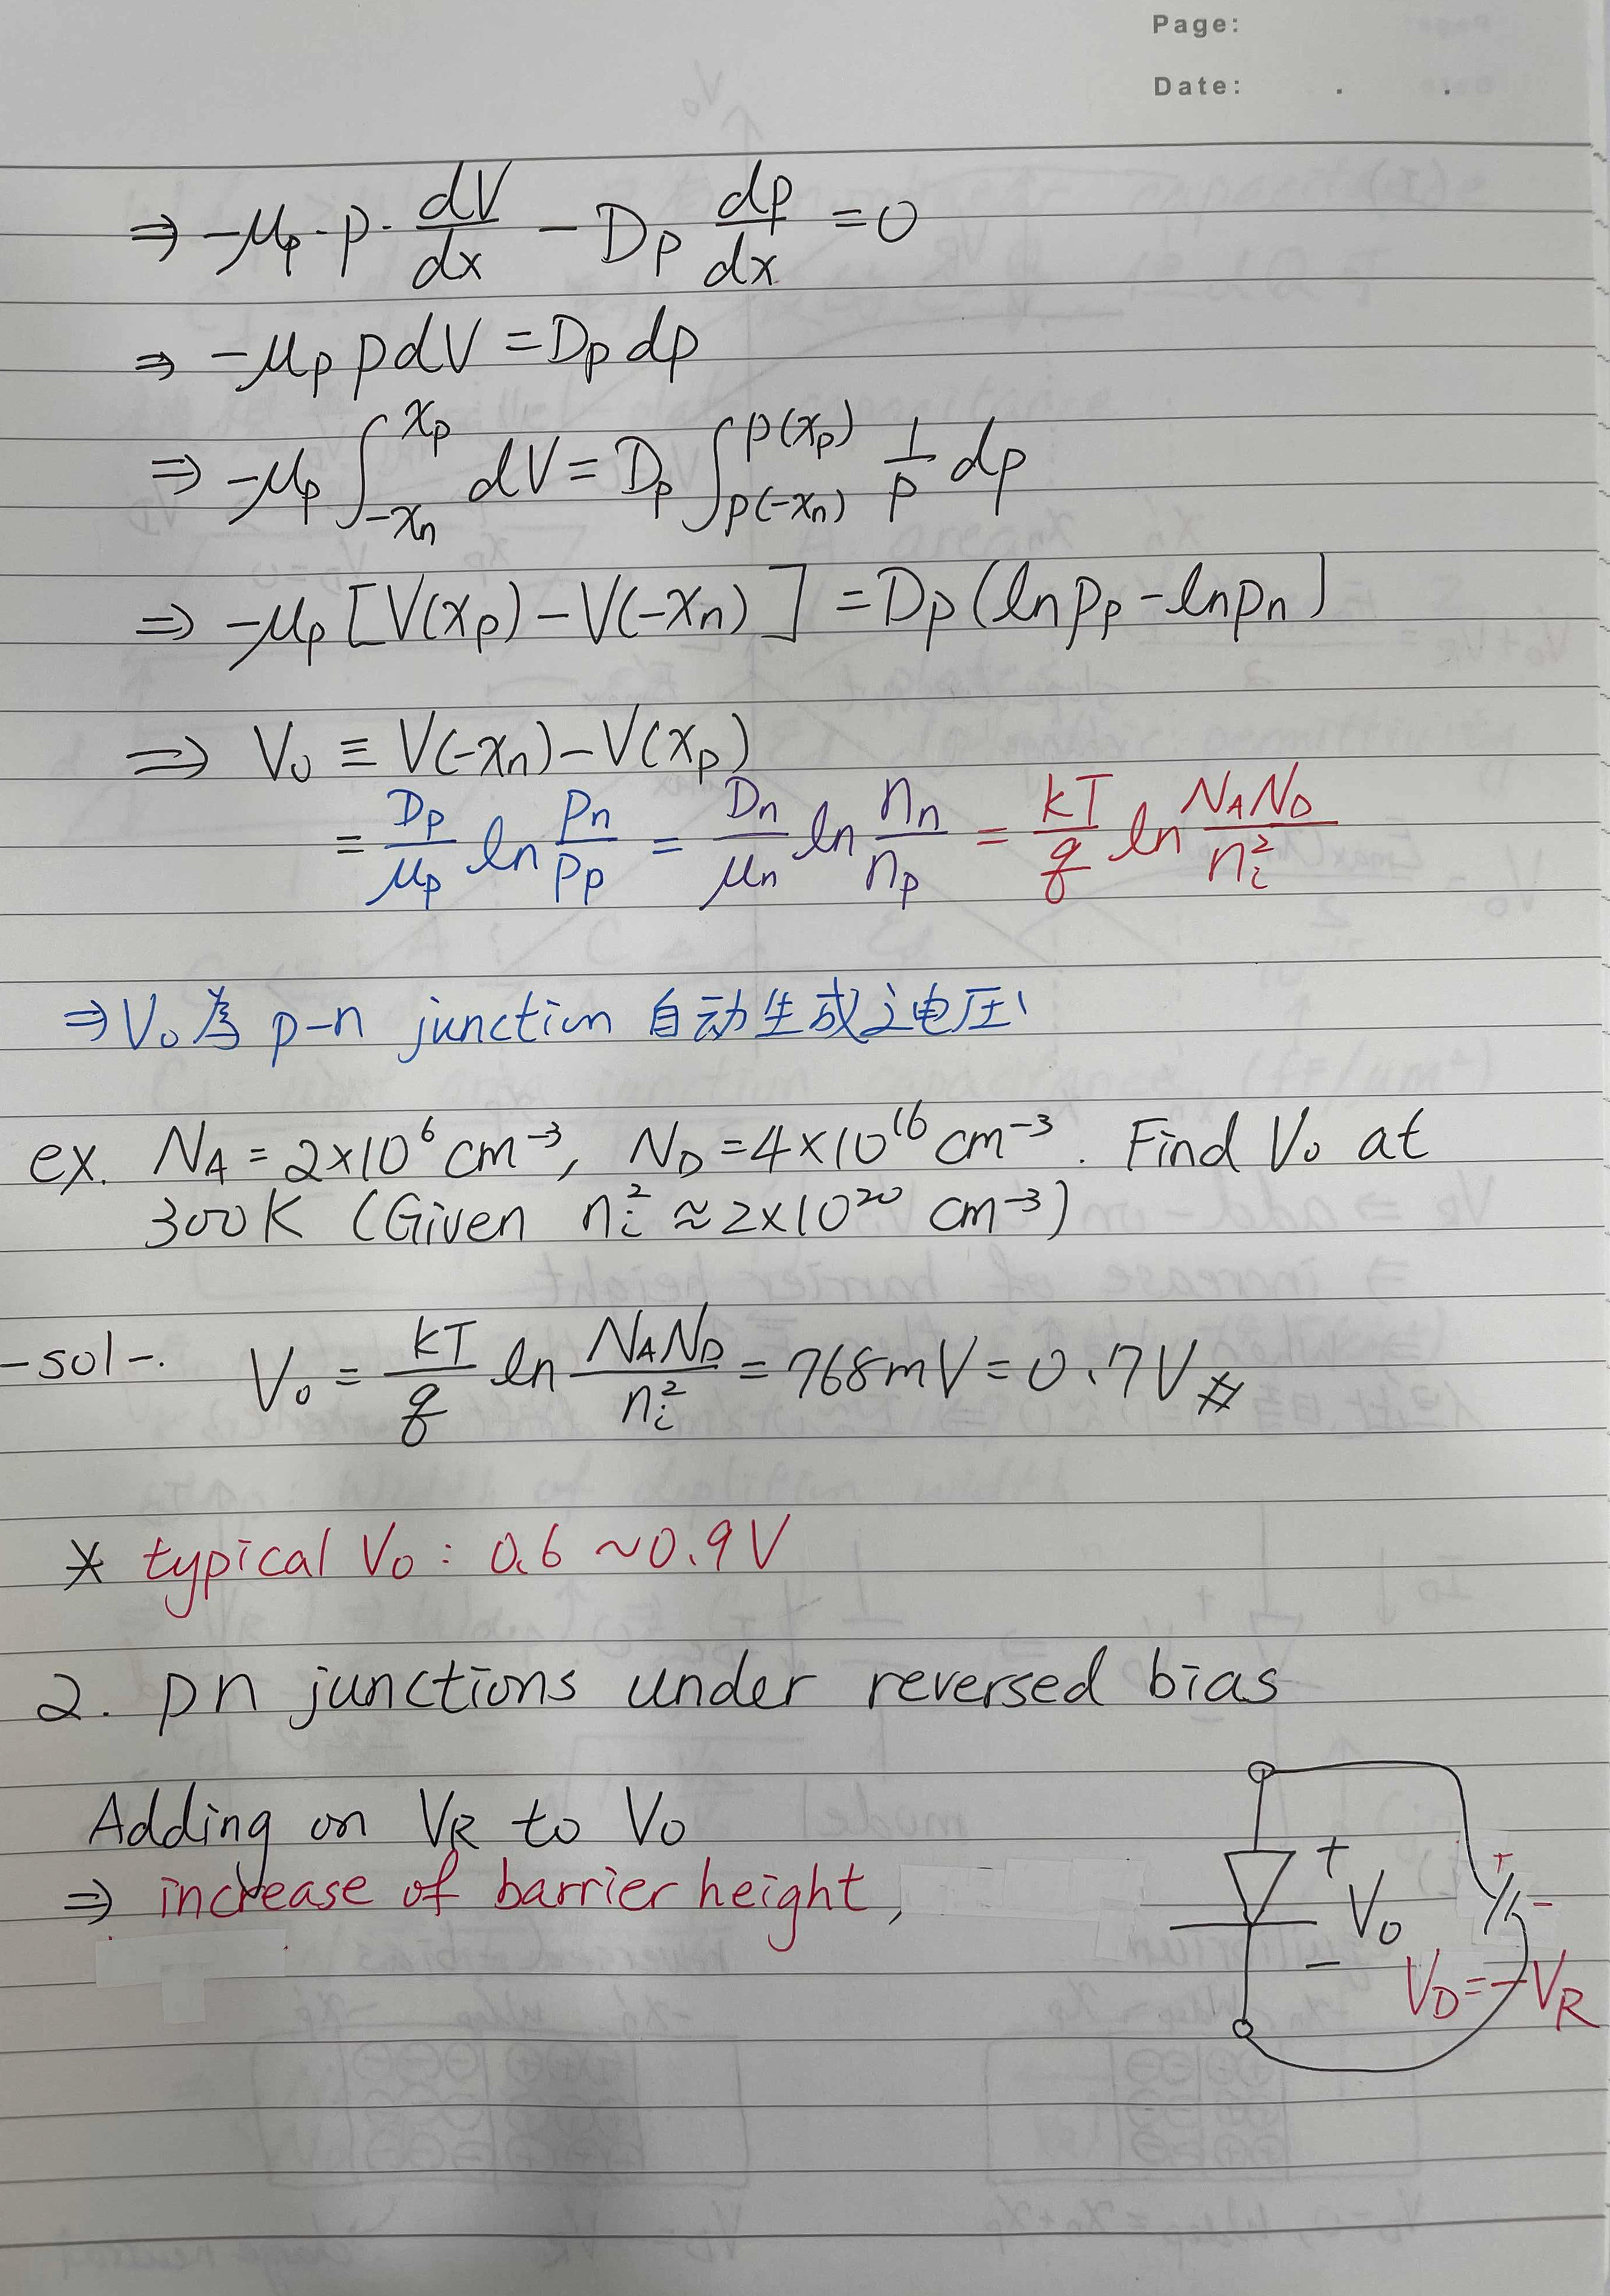 Page:
Date: . .
⇒ -μp·p·dV/dx - Dp dp/dx = 0
⇒ -μp p dV = Dp dp
⇒ -μp ∫_{-xn}^{xp} dV = Dp ∫_{p(-xn)}^{p(xp)} 1/p dp
⇒ -μp [V(xp) - V(-xn)] = Dp (ln pp - ln pn)
⇒ V0 ≡ V(-xn) - V(xp)
= Dp/μp ln pn/pp = Dn/μn ln nn/np = kT/q ln NAND/ni²
⇒ V0 為 p-n junction 自动生成之电压
ex. NA = 2×10⁶ cm⁻³, ND = 4×10¹⁶ cm⁻³. Find V0 at
300K (Given ni² ≈ 2×10²⁰ cm⁻³)
-sol-. V0 = kT/q ln NAND/ni² = 768mV = 0.7V #
* typical V0 : 0.6 ~ 0.9V
2. pn junctions under reversed bias
Adding on VR to V0
⇒ increase of barrier height,
+
V0
-
+ -
VD = -VR